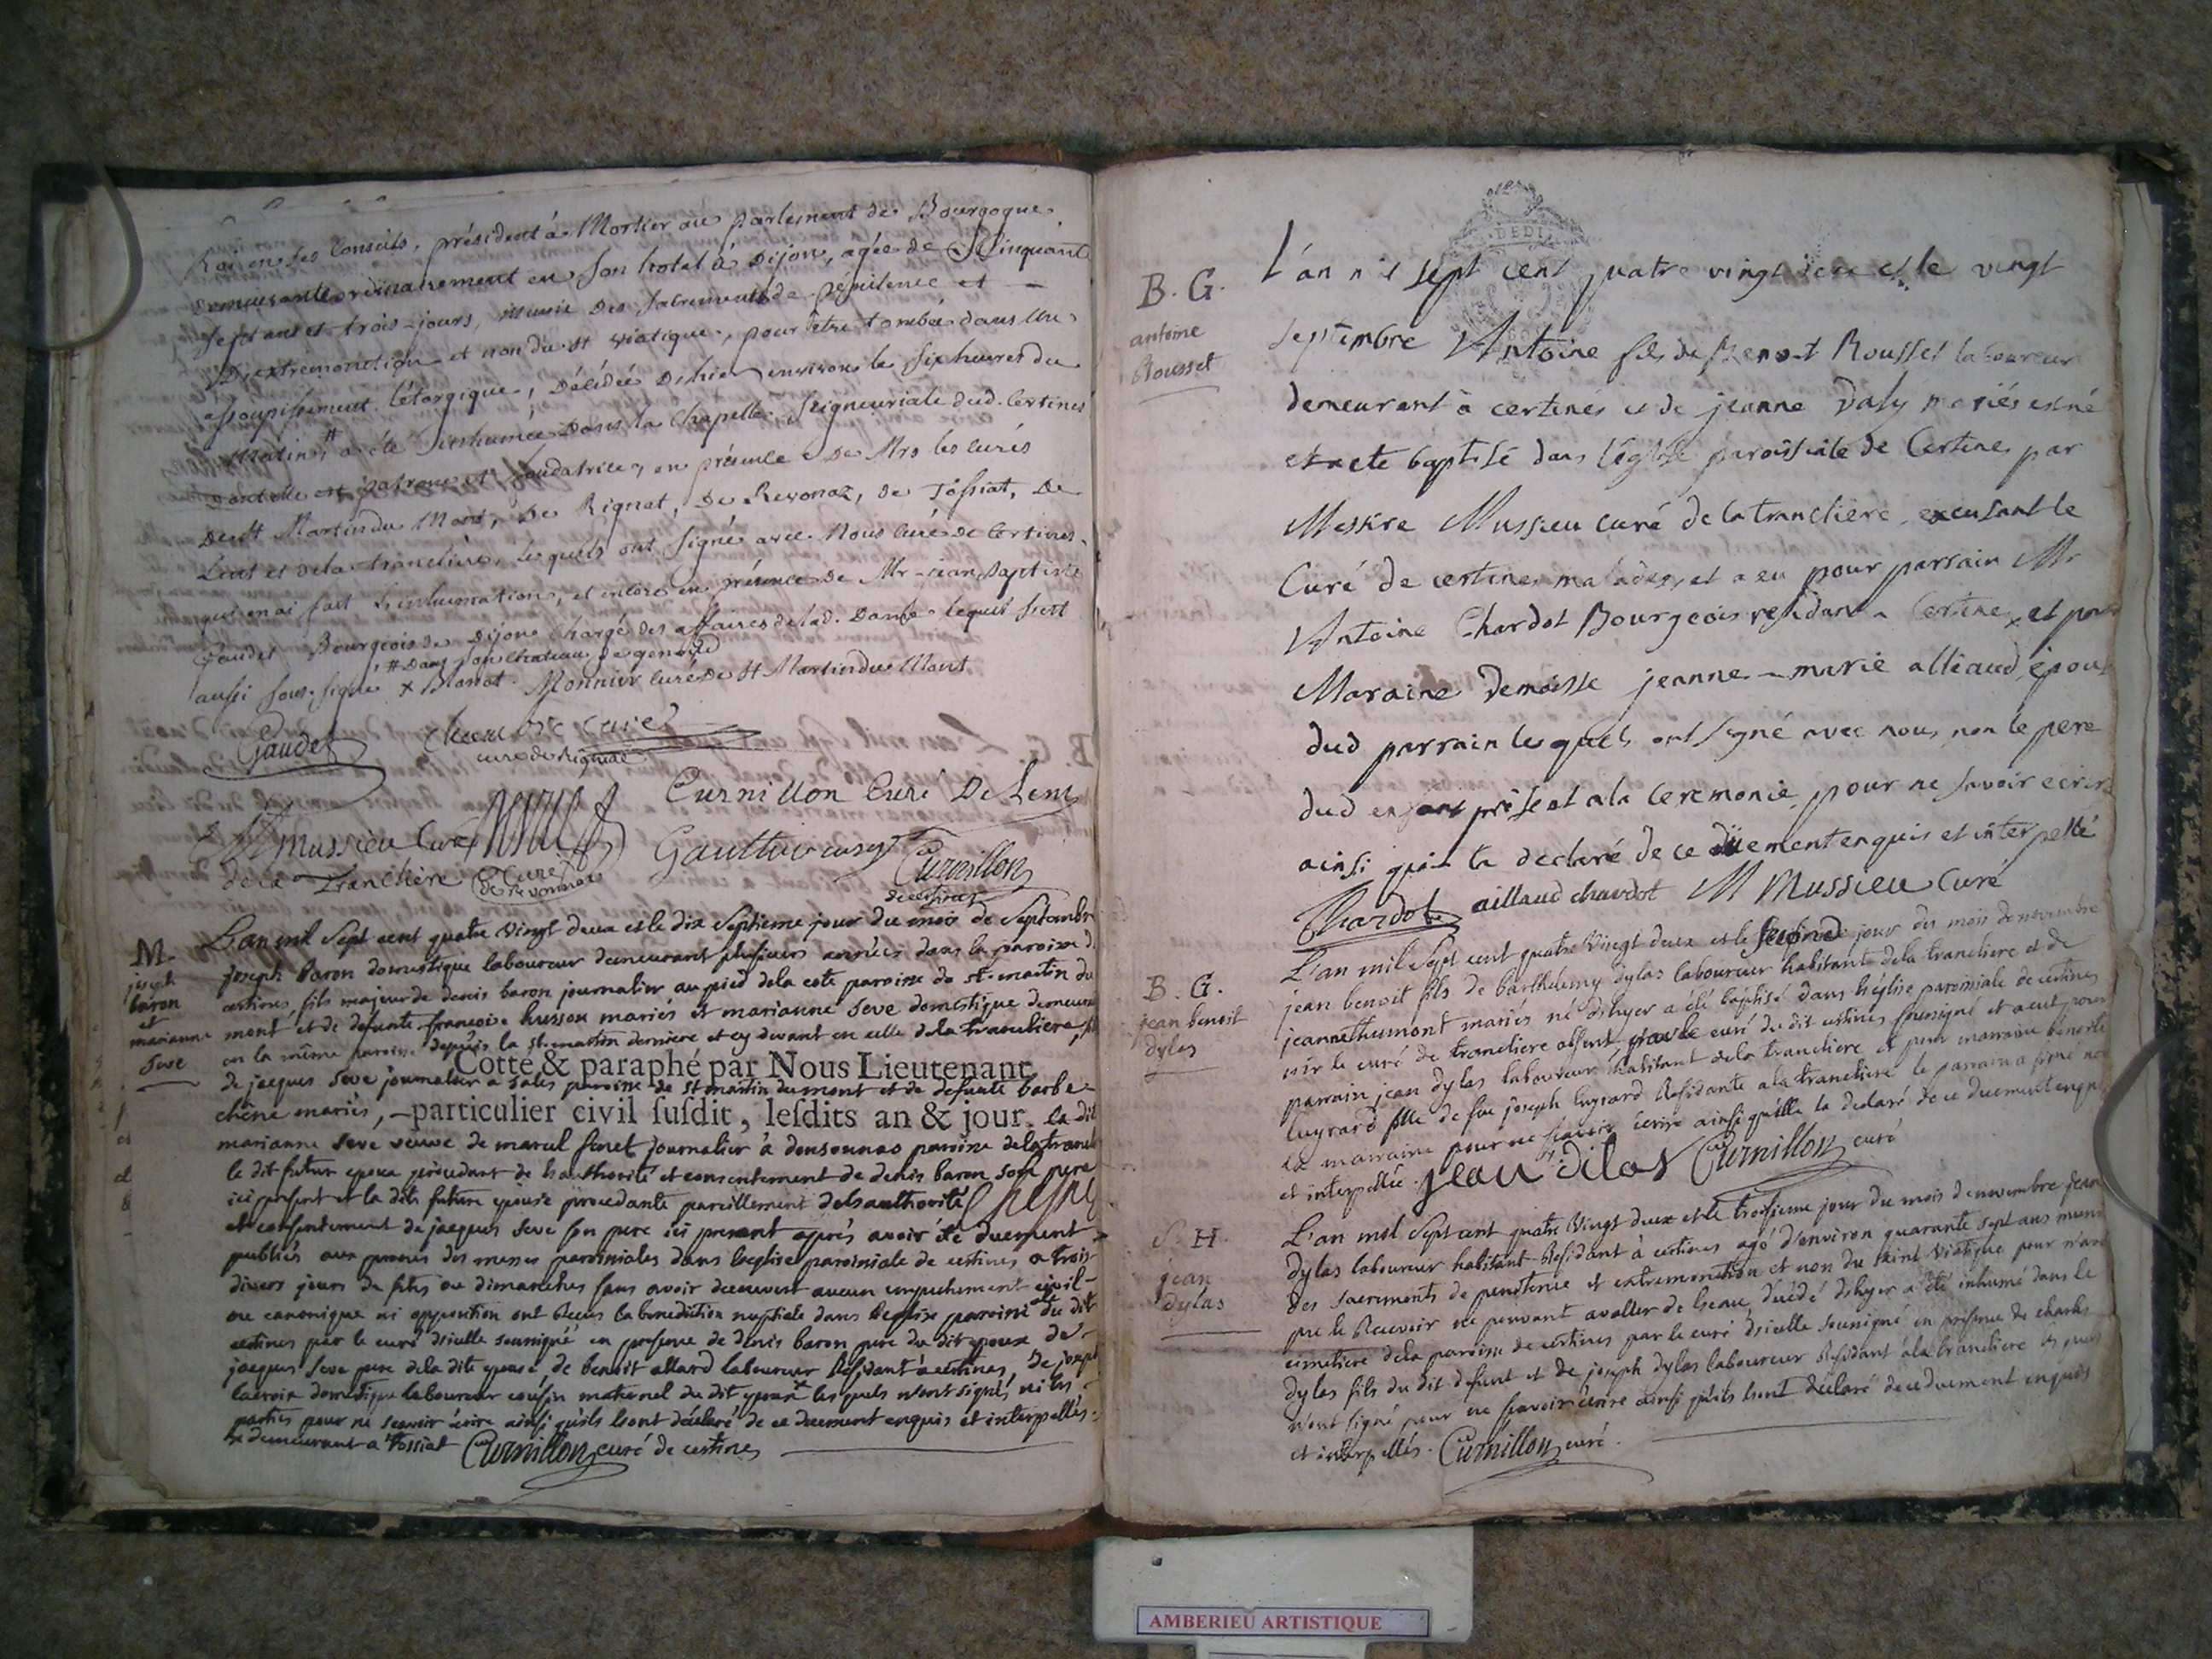 Roi en ses Conseils, président à Mortier au parlement de Bourgogne
demeurante ordinairement en son hotel à Dijon, agée de Cinquante
sept ans et trois jours, munie des sacrements de Pénitence et
D'extremonction et non du st viatique, pour être tombée dans un
assoupissement létargique, Décédée D'hier environ les six heures du
Matin, # a été inhumée Dans la Chapelle Seigneuriale dud. Certines
dont elle est patrone et fondatrice, en présence De Mrs les curés
De st Martin du Mont, De Rignat, De Revonaz, de Tossiat, De
Lent et dela tranclière, lesquels ont signé avec Nous Curé de Certines
qui en ai fait L'inhumation, et encore en présence de Mr jean Baptiste
Gaudet Bourgeois de Dijon chargé des affaires de lad. Dame lequel s'est
# Dans son chateau de genoud
aussi sous-signé x Monnier curé de St Martin du Mont
Gaudet
curé de Rignat
Curnillon Curé De Lent
Mussieu Curé
de la Tranclière
Curé
de Revonnas
Curnillon
de certines
M.
joseph
baron
et
marianne
Seve
L'an mil sept cent quatre vingt deux et le dix septieme jour du mois de Septembre
joseph baron domestique laboureur demeurant plusieurs années dans la paroisse de
certines fils majeur de denis baron journalier au pied dela cote paroisse de st. martin du
mont et de defunte francoise husson mariés et marianne Seve domestique demeurant
en la même paroisse depuis la st. martin derniere et cy devant en celle dela tranclière,
Cotté & paraphé par Nous Lieutenant
de jacques Seve journalier a sales paroisse de st martin du mont et de defunte barbe
chêne mariés, particulier civil ſuſdit, leſdits an & jour. la dite
marianne Seve veuve de marcel journalier à donsonnas paroisse dela tranclière
le dit futur epoux procedant de l'authorité et consentement de denis baron son pere
ici present et la dite future epouse procedante pareillement de l'authorité
et consentement de jacques Seve son pere ici present après avoir été duement
publiés aux prones des messes paroissiales dans l'eglise paroissiale de certines a trois
divers jours de fêtes ou dimanches sans avoir decouvert aucun empechement civil
ou canonique ni opposition ont Reçus la benediction nuptiale dans l'eglise paroissiale du dit
certines par le curé d'icelle soussigné en presence de denis baron pere du dit epoux de
jacques Seve pere dela dite epouse de benoit allard laboureur Résidant à certines, de joseph
lacroix domestique laboureur cousin maternel du dit epoux x les quels n'ont signé, ni les
parties pour ne scavoir écrire ainsi qu'ils l'ont déclaré de ce duement enquis et interpellés.
x demeurant a Tossiat Curnillon curé de certines
B. G.
antoine
Rousset
L'an mil sept cent quatre vingt deux et le vingt
septembre Antoine fils de Benoit Rousset laboureur
demeurant à certines et de jeanne Daly mariés est né
et a eté baptisé dans l'église paroissiale de Certines par
Messire Mussieu curé de la tranclière, excusant le
Curé de certines malade, et a eu pour parrain Mr
Antoine Chardot Bourgeois residant a Certines et pour
Maraine demoisle jeanne-marie alléaud épouse
dud parrain lesquels ont signé avec nous, non le pere
dud enfant présent a la ceremonie, pour ne savoir ecrire
ainsi qu'il l'a declaré de ce düement enquis et interpellé
Chardot aillaud chardot M Mussieu Curé
B. G.
jean benoit
dylas
L'an mil Sept cent quatre Vingt deux et le second jour du mois de novembre
jean benoit fils de barthelemy dylas laboureur habitant dela tranclière et de
jeanne thumont mariés né d'hyer a été baptisé dans l'église paroissiale de certines
vir le curé de tranclière absent par le curé du dit certines soussigné et a eut pour
parrain jean dylas laboureur habitant dela tranclière et pour marraine benoite
lugrard fille de feu joseph lugrard Résidante a la tranclière le parrain a signé non
la marraine pour ne scavoir écrire ainsi qu'elle l'a declaré de ce duement enquise
et interpellée. jean dilas Curnillon curé
S. H.
jean
dylas
L'an mil Sept cent quatre Vingt deux et le troisieme jour du mois de novembre jean
dylas laboureur habitant Résidant à certines agé d'environ quarante sept ans muni
des sacrements de penitence et extremonction et non du saint Viatique pour n'avoir
pu le Recevoir ne pouvant avaller de l'eau, décédé d'hyer a été inhumé dans le
cimetiere dela paroisse de certines par le curé d'icelle soussigné en presence de charles
dylas fils du dit defunt et de joseph dylas laboureur Résidant à la tranclière les quels
n'ont signé pour ne scavoir écrire ainsi qu'ils l'ont déclaré de ce duement enquis
et interpellés. Curnillon curé.
AMBERIEU ARTISTIQUE